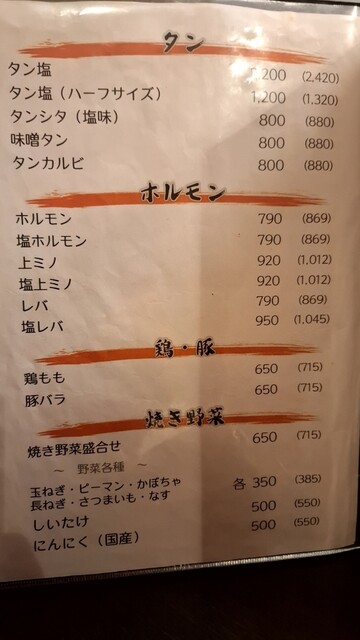 タン
タン塩 2,200 (2,420)
タン塩（ハーフサイズ） 1,200 (1,320)
タンシタ（塩味） 800 (880)
味噌タン 800 (880)
タンカルビ 800 (880)
ホルモン
ホルモン 790 (869)
塩ホルモン 790 (869)
上ミノ 920 (1,012)
塩上ミノ 920 (1,012)
レバ 790 (869)
塩レバ 950 (1,045)
鶏・豚
鶏もも 650 (715)
豚バラ 650 (715)
焼き野菜
焼き野菜盛合せ 650 (715)
～ 野菜各種 ～
玉ねぎ・ピーマン・かぼちゃ 各 350 (385)
長ねぎ・さつまいも・なす
しいたけ 500 (550)
にんにく（国産） 500 (550)